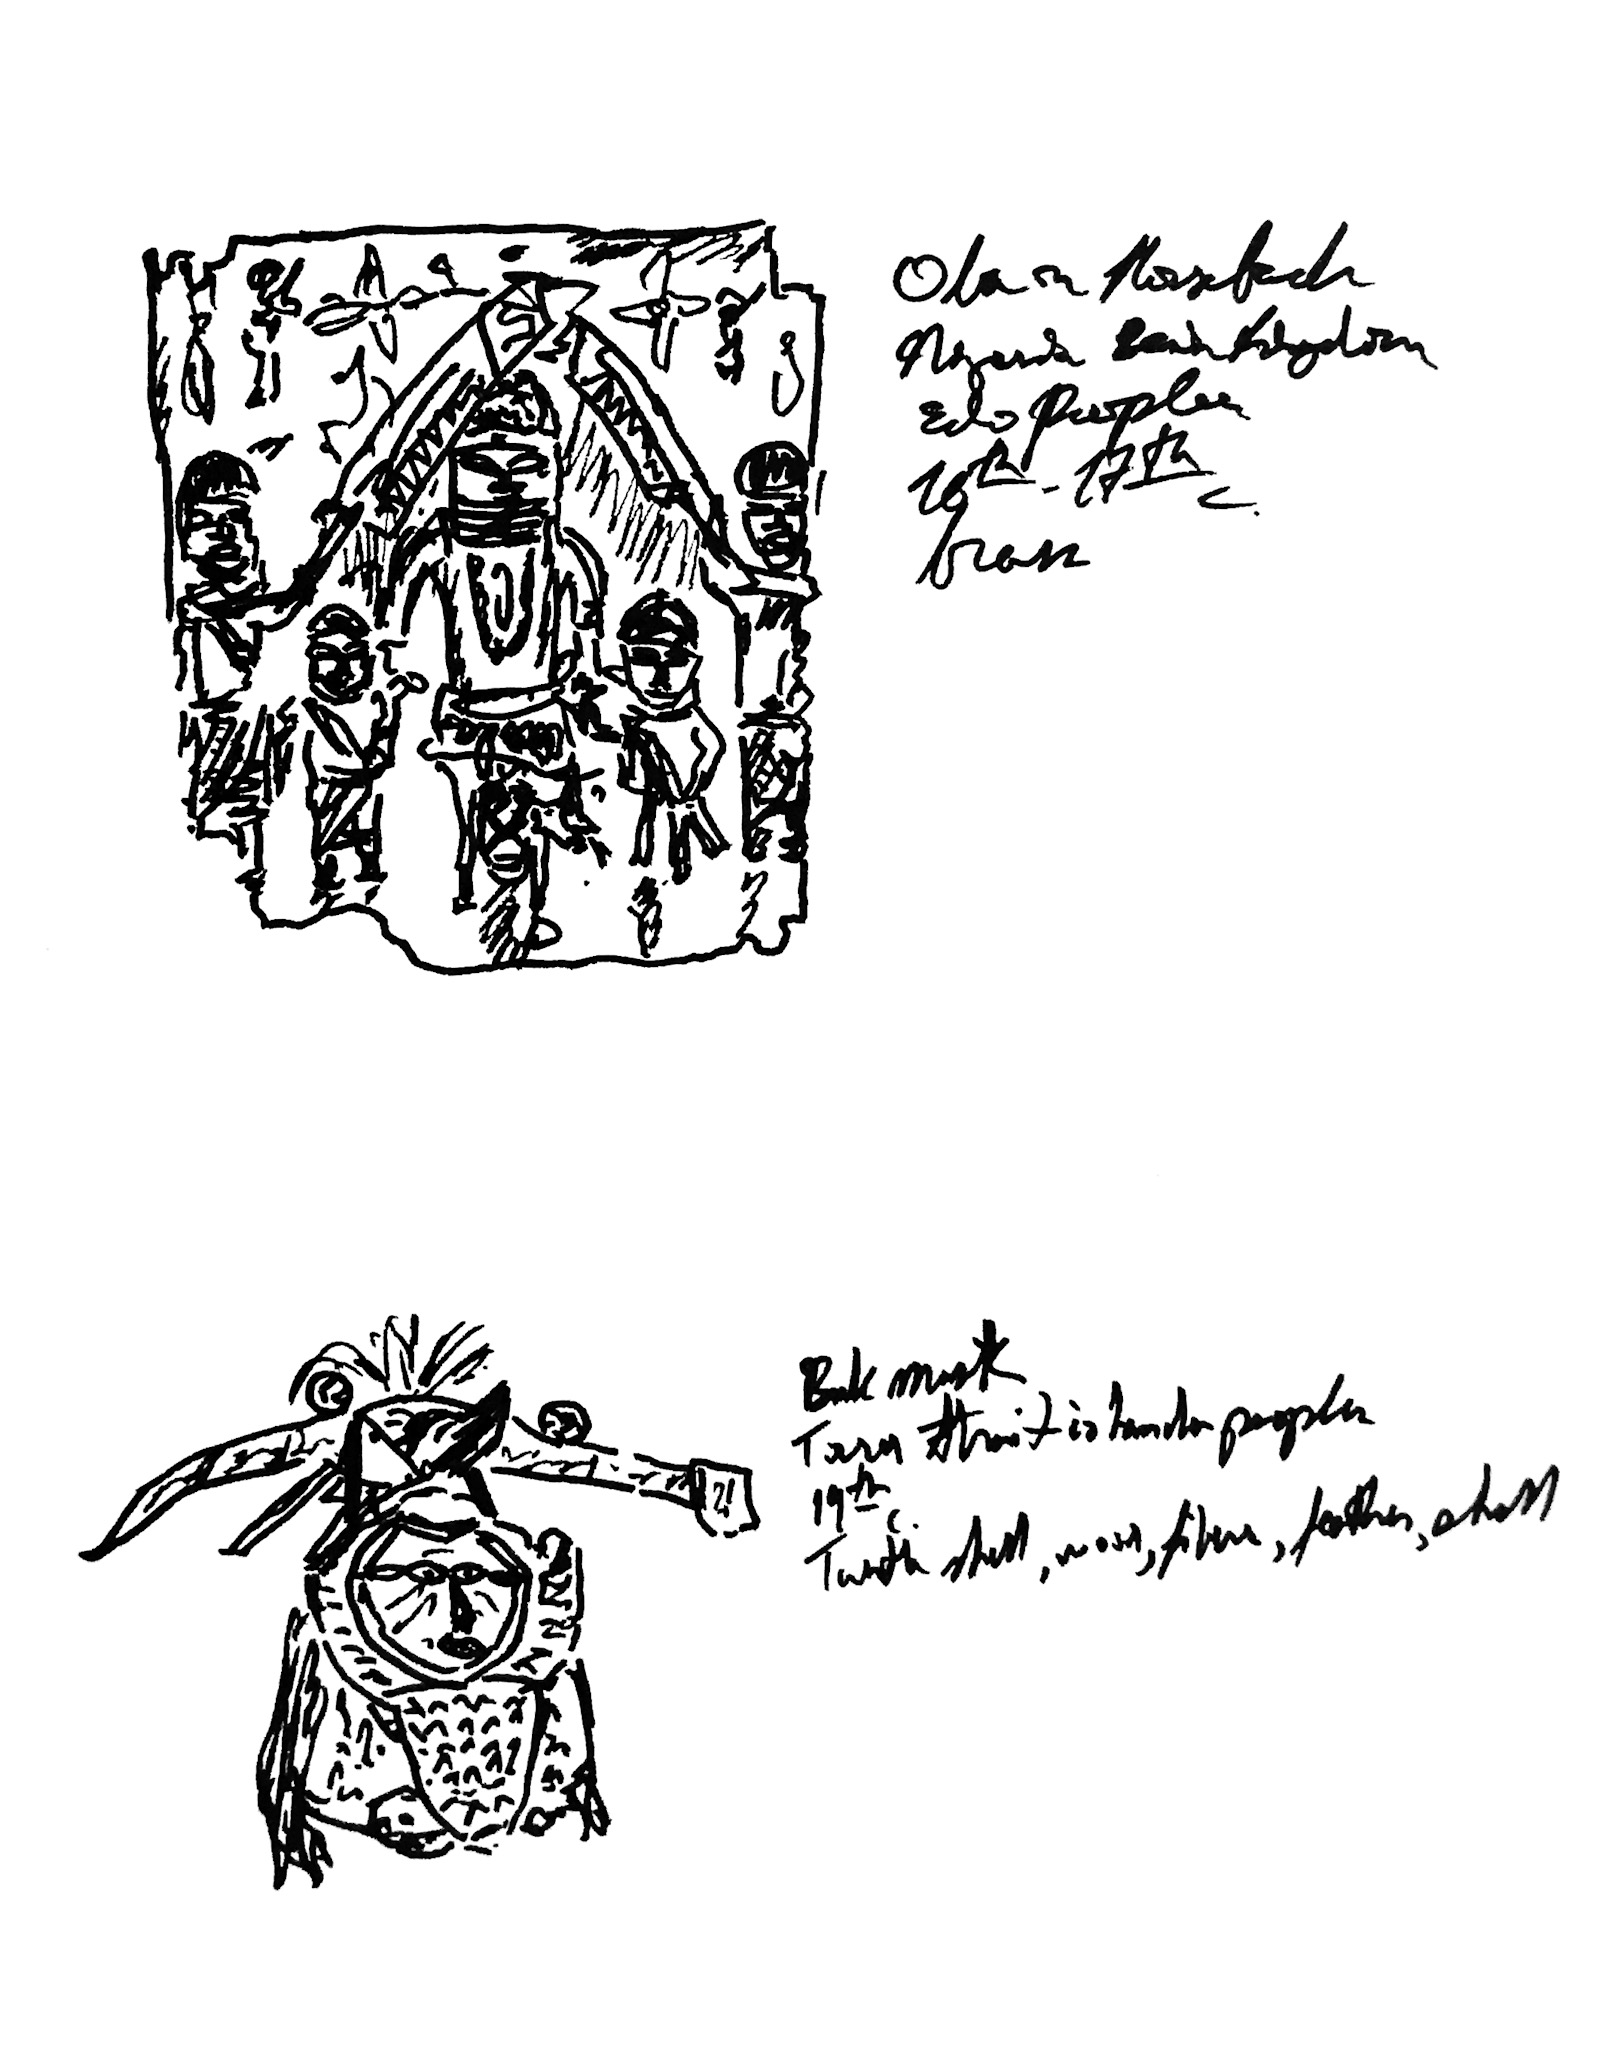 Oba on Horseback
Nigeria Benin Kingdom
Edo Peoples
16th - 17th c.
brass
Buk mask
Torres Strait islander peoples
19th c.
Turtle shell, wood, fiber, feather, shell